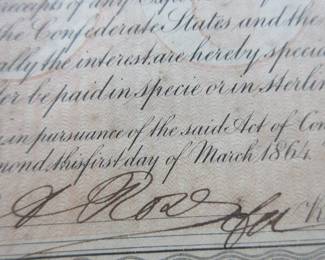 receipts of any
the Confederate States and the
ally the interest are hereby speci
er be paid in specie or in sterlin
in pursuance of the said Act of Con
mond, this first day of March 1864.
Ross